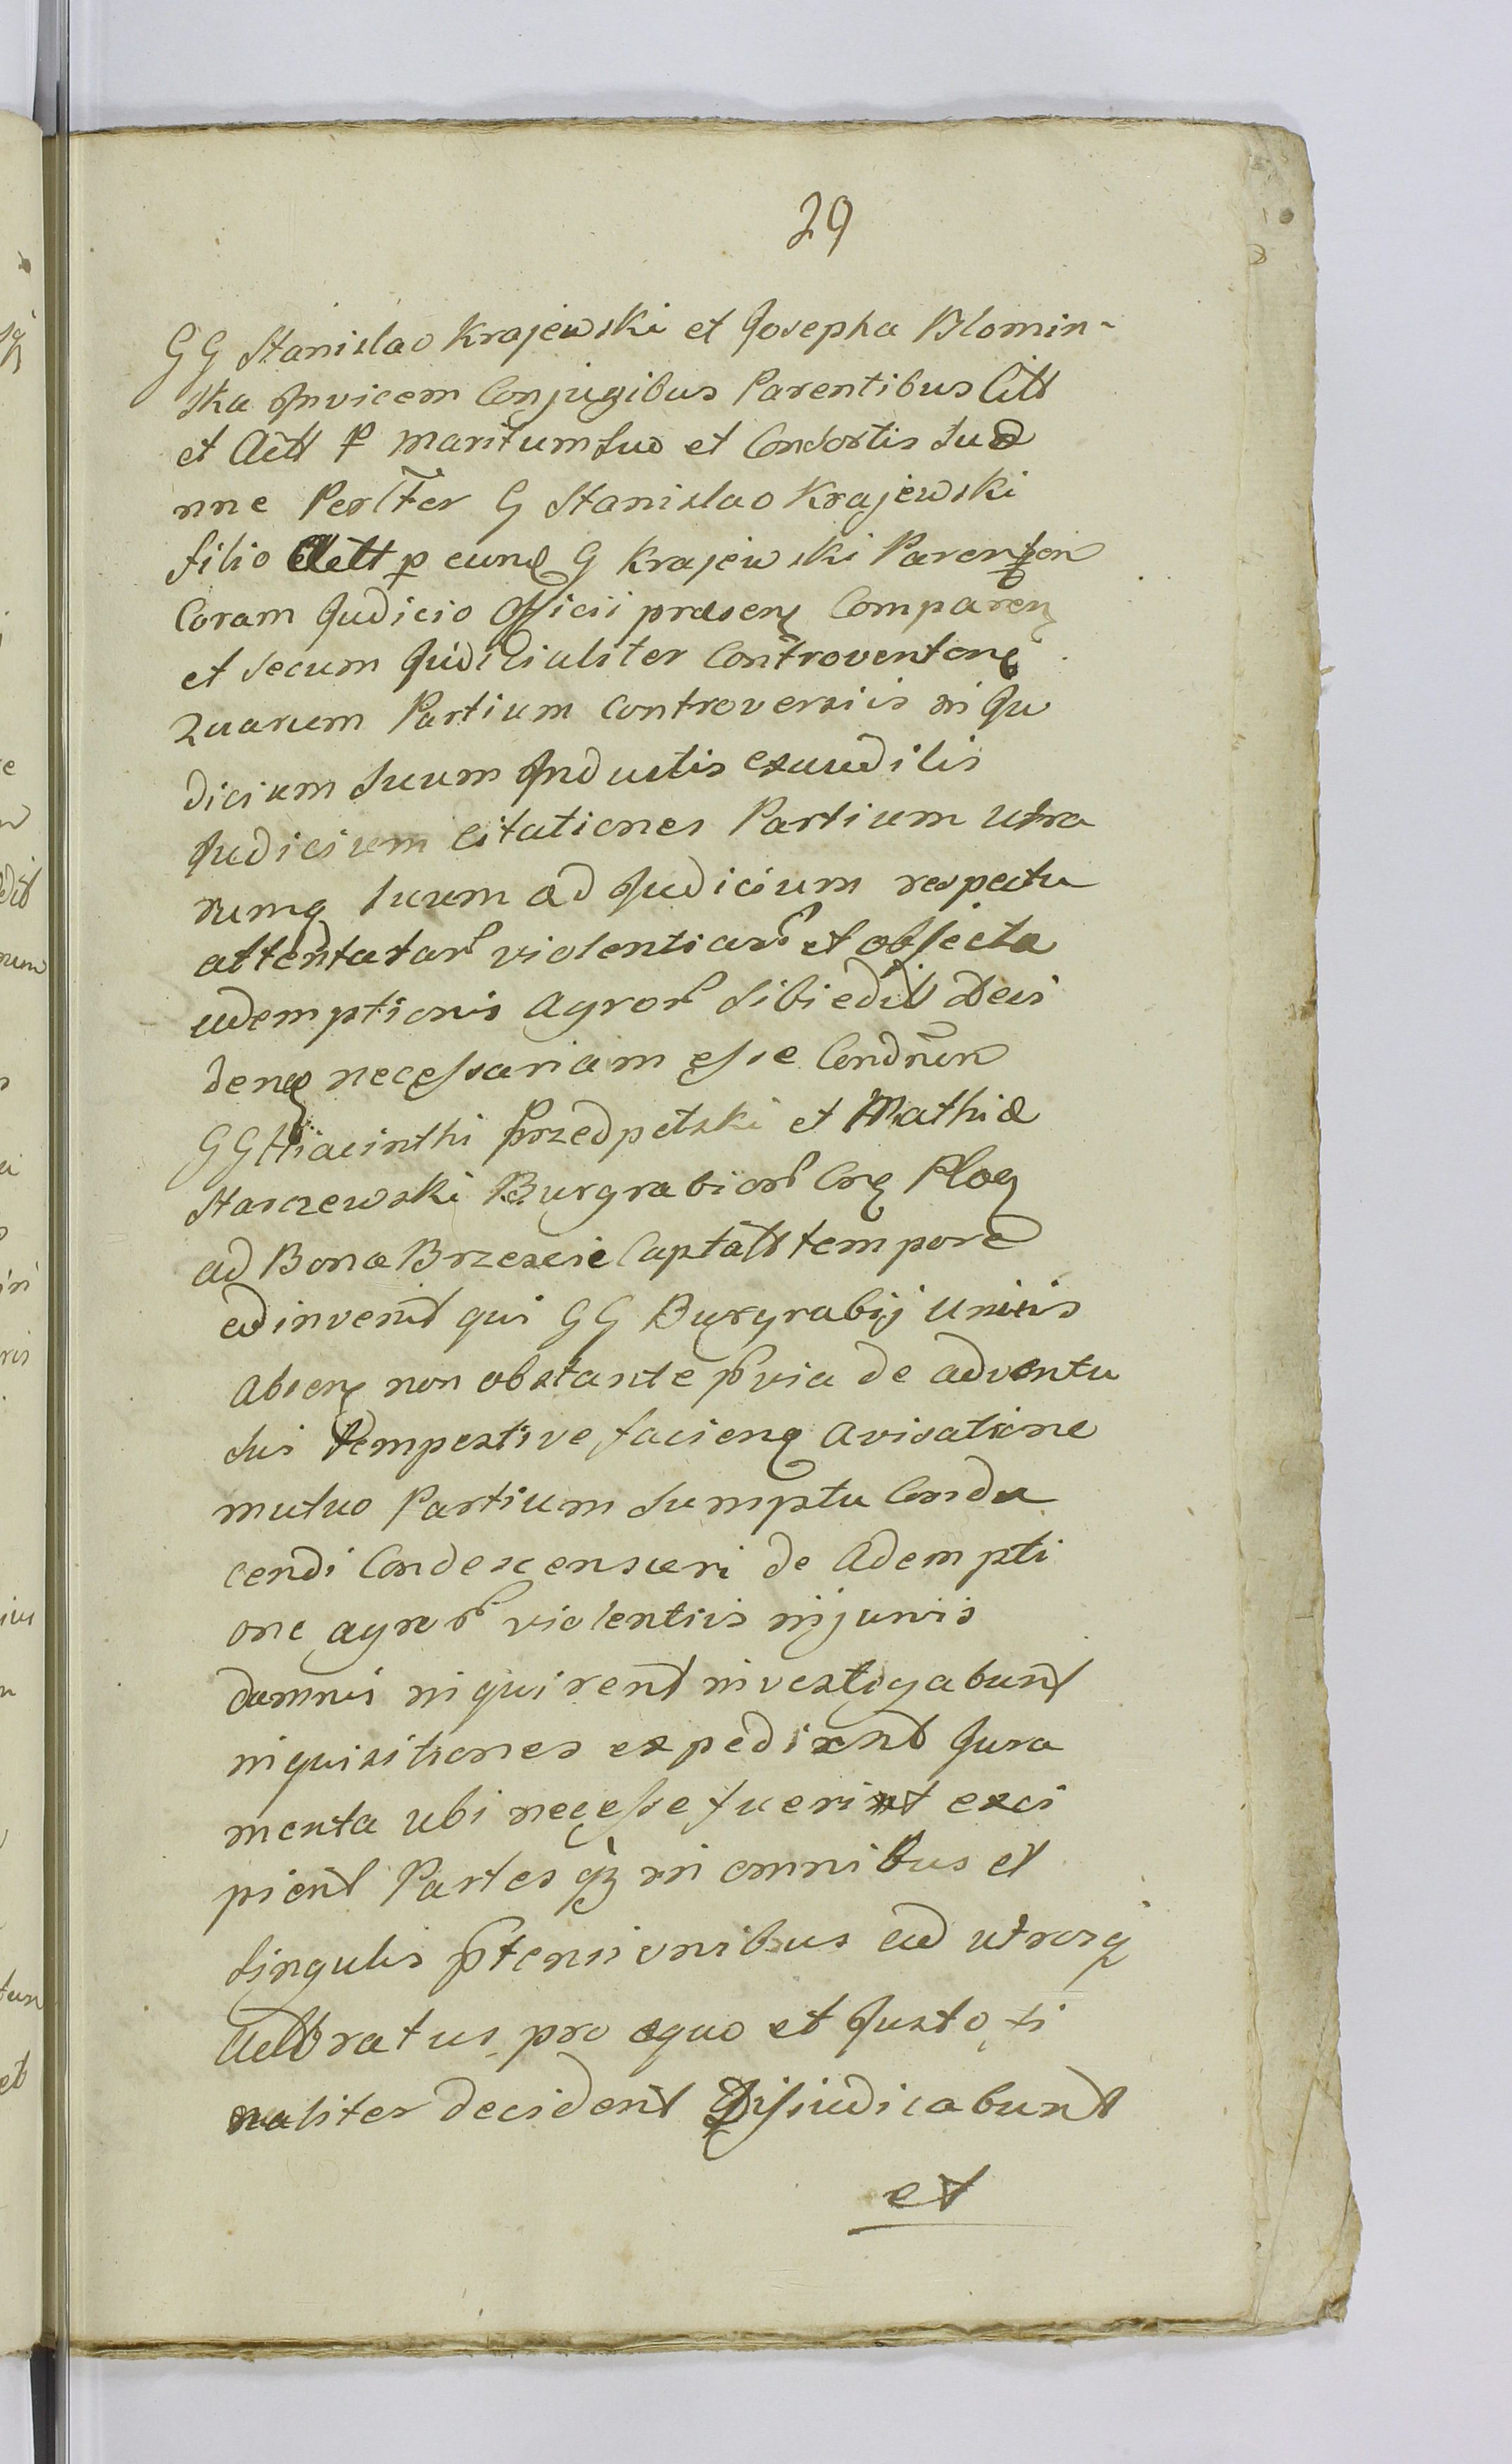 29
GG Stanislao Krajewski et Josepha Blomin-
ska Invicem Conjugibus Parentibus Citt
et Actt p maritum suũ et Consortis suæ
nne Perlter G Stanislao Krajewski
filio Actt p eund G Krajewski Parentem
Coram Judicio Officii præsen Comparen
et secum Judicialiter Controverten
Quarum Partium Controversiis in Ju
dicium suum Inductis exauditis
Judicium citationes Partium utra
rumq suum ad Judicium respectu
attentatar violentiar et objecta
ademptionis Agror sibi edit Deci
denq necessariam esse Condnem
GG Hiacinthi Przedpelski et Mathiæ
Starczewski Burgrabior Crg Ploc
ad Bona Brzescie Captatt tempore
adinvenit qui GG Burgrabij Unius
absen non obstante pvia de adventu
sui tempestive facienq avisatione
mutuo Partium sumptu Condu
cendi Condescensuri de Adempti
one agror violentiis injuriis
damnis inquirent investigabunt
inquisitiones expedient Jura
menta ubi necesse fuerint exci
pient Partes qz in omnibus et
singulis ptensionibus ad utrosq
Actoratus pro æquo et Justo fi
naliter decident Dijudicabunt
et